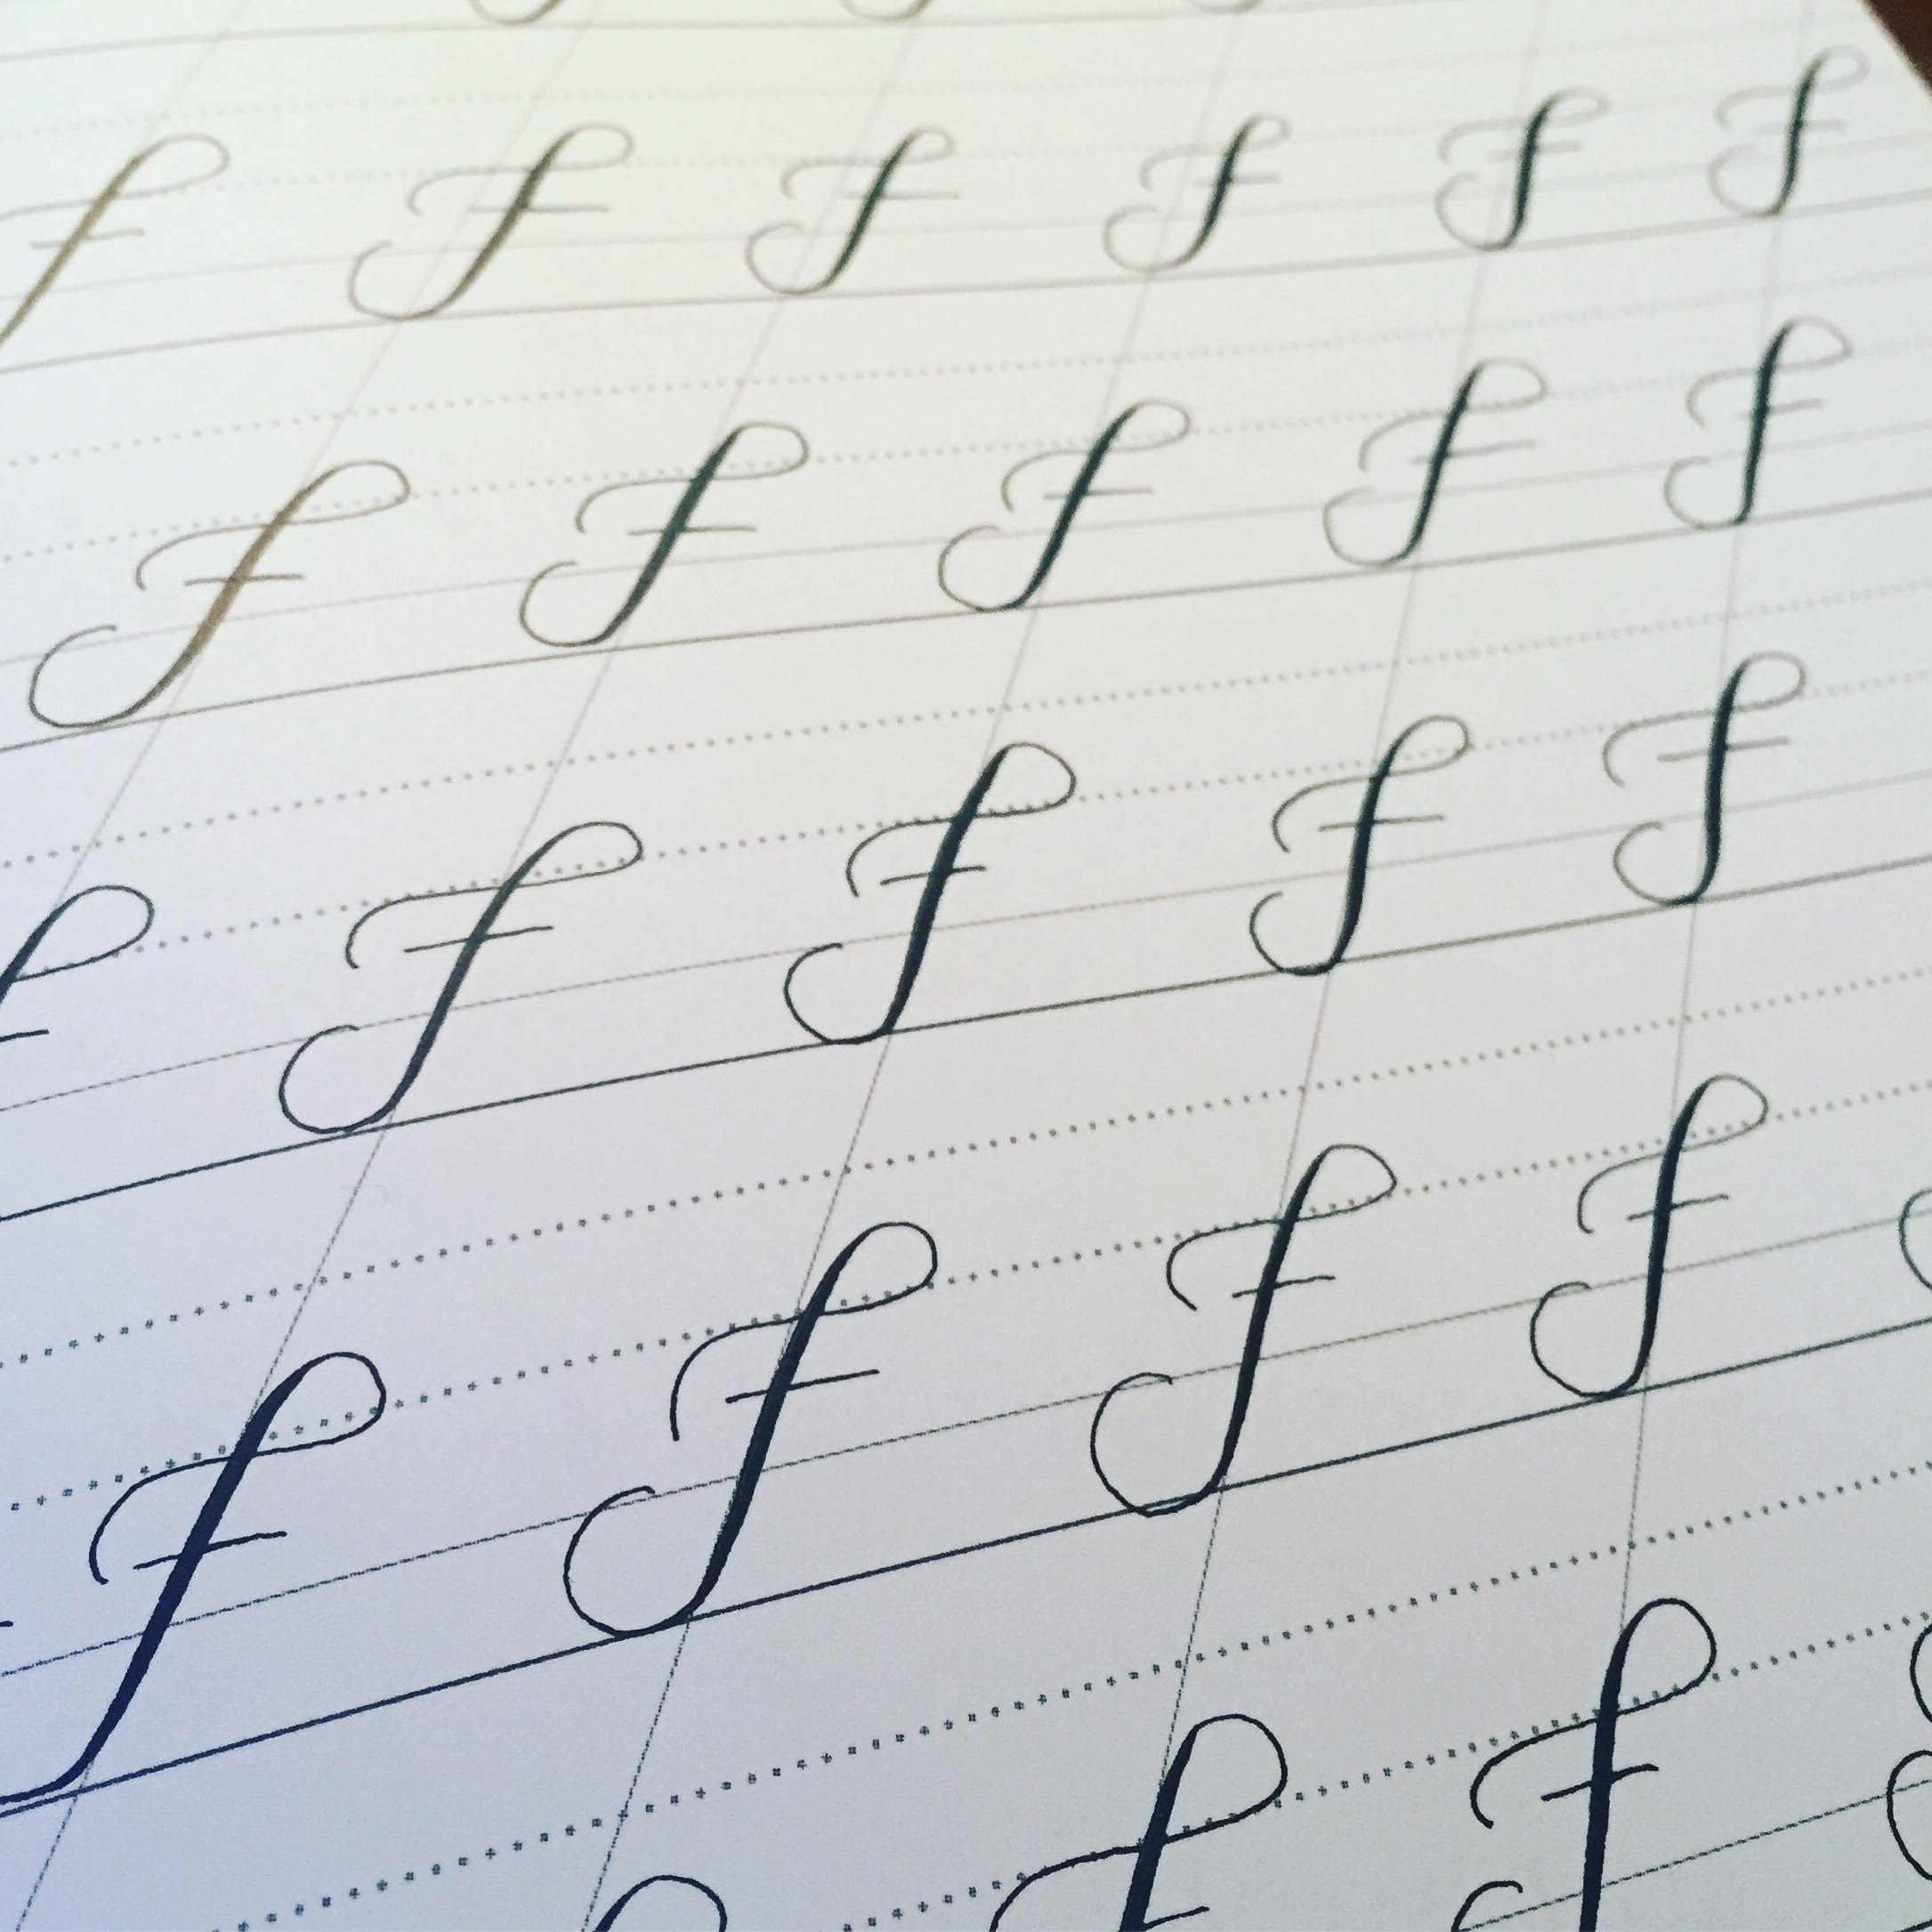 F F F F F F
F F F F F
F F F F F
F F F F
F F